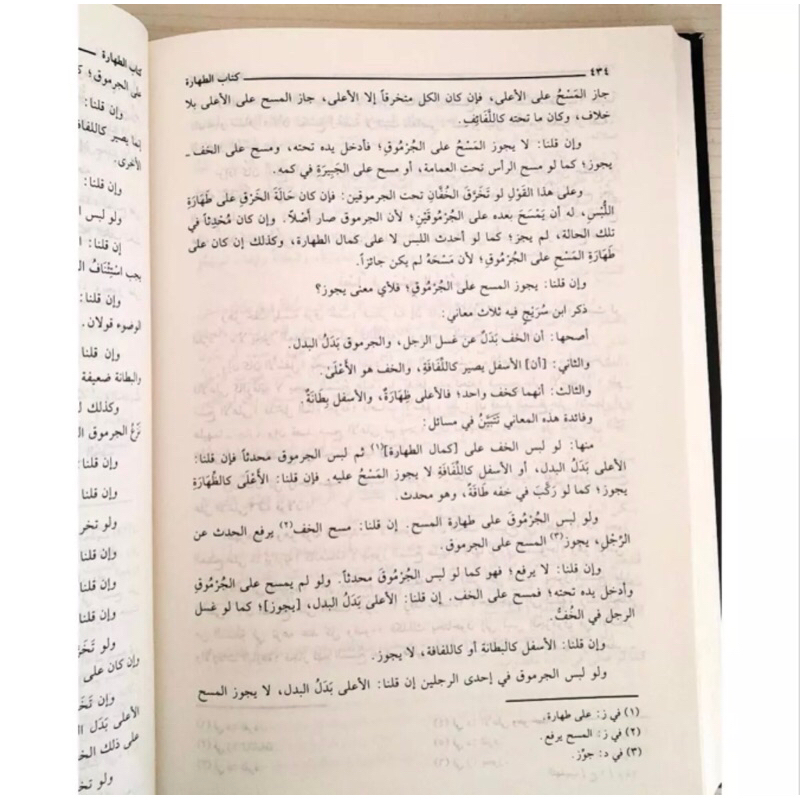 ٤٣٤ كتاب الطهارة
جاز المَسْحُ على الأعلى، فإن كان الكل متخرقاً إلا الأعلى، جاز المسح على الأعلى بلا
خلاف، وكان ما تحته كاللَّفَائِفِ.
وإن قلنا: لا يجوز المَسْحُ على الجُرْمُوقِ؛ فأدخل يده تحته، ومسح على الخف ـ
يجوز؛ كما لو مسح الرأس تحت العمامة، أو مسح على الجَبِيرَةِ في كمه.
وعلى هذا القَوْلِ لو تَخَرَّقَ الخُفَّانِ تحت الجرموقين: فإن كان حَالَةَ الخَرْقِ على طَهَارَةِ
اللُّبْسِ، له أن يَمْسَحَ بعده على الجُرْمُوقَيْنِ؛ لأن الجرموق صار أَصْلاً. وإن كان مُحْدِثاً في
تلك الحالة، لم يجز؛ كما لو أحدث اللبس لا على كمال الطهارة، وكذلك إن كان على
طَهَارَةِ المَسْحِ على الجُرْمُوقِ؛ لأن مَسْحَهُ لم يكن جائزاً.
وإن قلنا: يجوز المسح على الجُرْمُوقِ؛ فلأي معنى يجوز؟
ذكر ابن سُرَيْجٍ فيه ثلاث معاني:
أصحها: أن الخف بَدَلٌ عن غسل الرجل، والجرموق بَدَلُ البدل.
والثاني: [أن] الأسفل يصير كاللِّفَافَةِ، والخف هو الأَعْلَىٰ.
والثالث: أنهما كخف واحد؛ فالأعلى ظِهَارَةٌ، والأسفل بِطَانَةٌ.
وفائدة هذه المعاني تَتَبَيَّنُ في مسائل:
منها: لو لبس الخف على [كمال الطهارة](١) ثم لبس الجرموق محدثاً فإن قلنا:
الأعلى بَدَلُ البدل، أو الأسفل كاللِّفَافَةِ لا يجوز المَسْحُ عليه. فإن قلنا: الأَعْلَى كالظِّهَارَةِ
يجوز؛ كما لو رَكَّبَ في خفه طَاقَةً، وهو محدث.
ولو لبس الجُرْمُوقَ على طهارة المسح. إن قلنا: مسح الخف(٢) يرفع الحدث عن
الرِّجْلِ، يجوز(٣) المسح على الجرموق.
وإن قلنا: لا يرفع؛ فهو كما لو لبس الجُرْمُوقَ محدثاً. ولو لم يمسح على الجُرْمُوقِ
وأدخل يده تحته؛ فمسح على الخف. إن قلنا: الأعلى بَدَلُ البدل، [يجوز]؛ كما لو غسل
الرجل في الخُفِّ.
وإن قلنا: الأسفل كالبطانة أو كاللفافة، لا يجوز.
ولو لبس الجرموق في إحدى الرجلين إن قلنا: الأعلى بَدَلُ البدل، لا يجوز المسح
(١) في ز: على طهارة.
(٢) في ز: المسح يرفع.
(٣) في د: جوِّز.
كتاب الطهارة
على الجرموق؛
وإن قلنا:
إنما يصير كاللفافة
الأخرى.
وإن قلنا:
ولو لبس
إن قلنا:
يجب اسْتِئْنَافُ
وإن قلنا:
الوضوء قولان.
وإن قلنا
والبطانة ضعيفة
وكذلك
نَزْعُ الجرموق
وإن قلنا:
وإن قلنا
ولو تخر
وإن قلنا
وإن قلنا:
وإن قلنا:
ولو
وإن كان على
وإن
الأعلى بَدَل
على ذلك
ولو